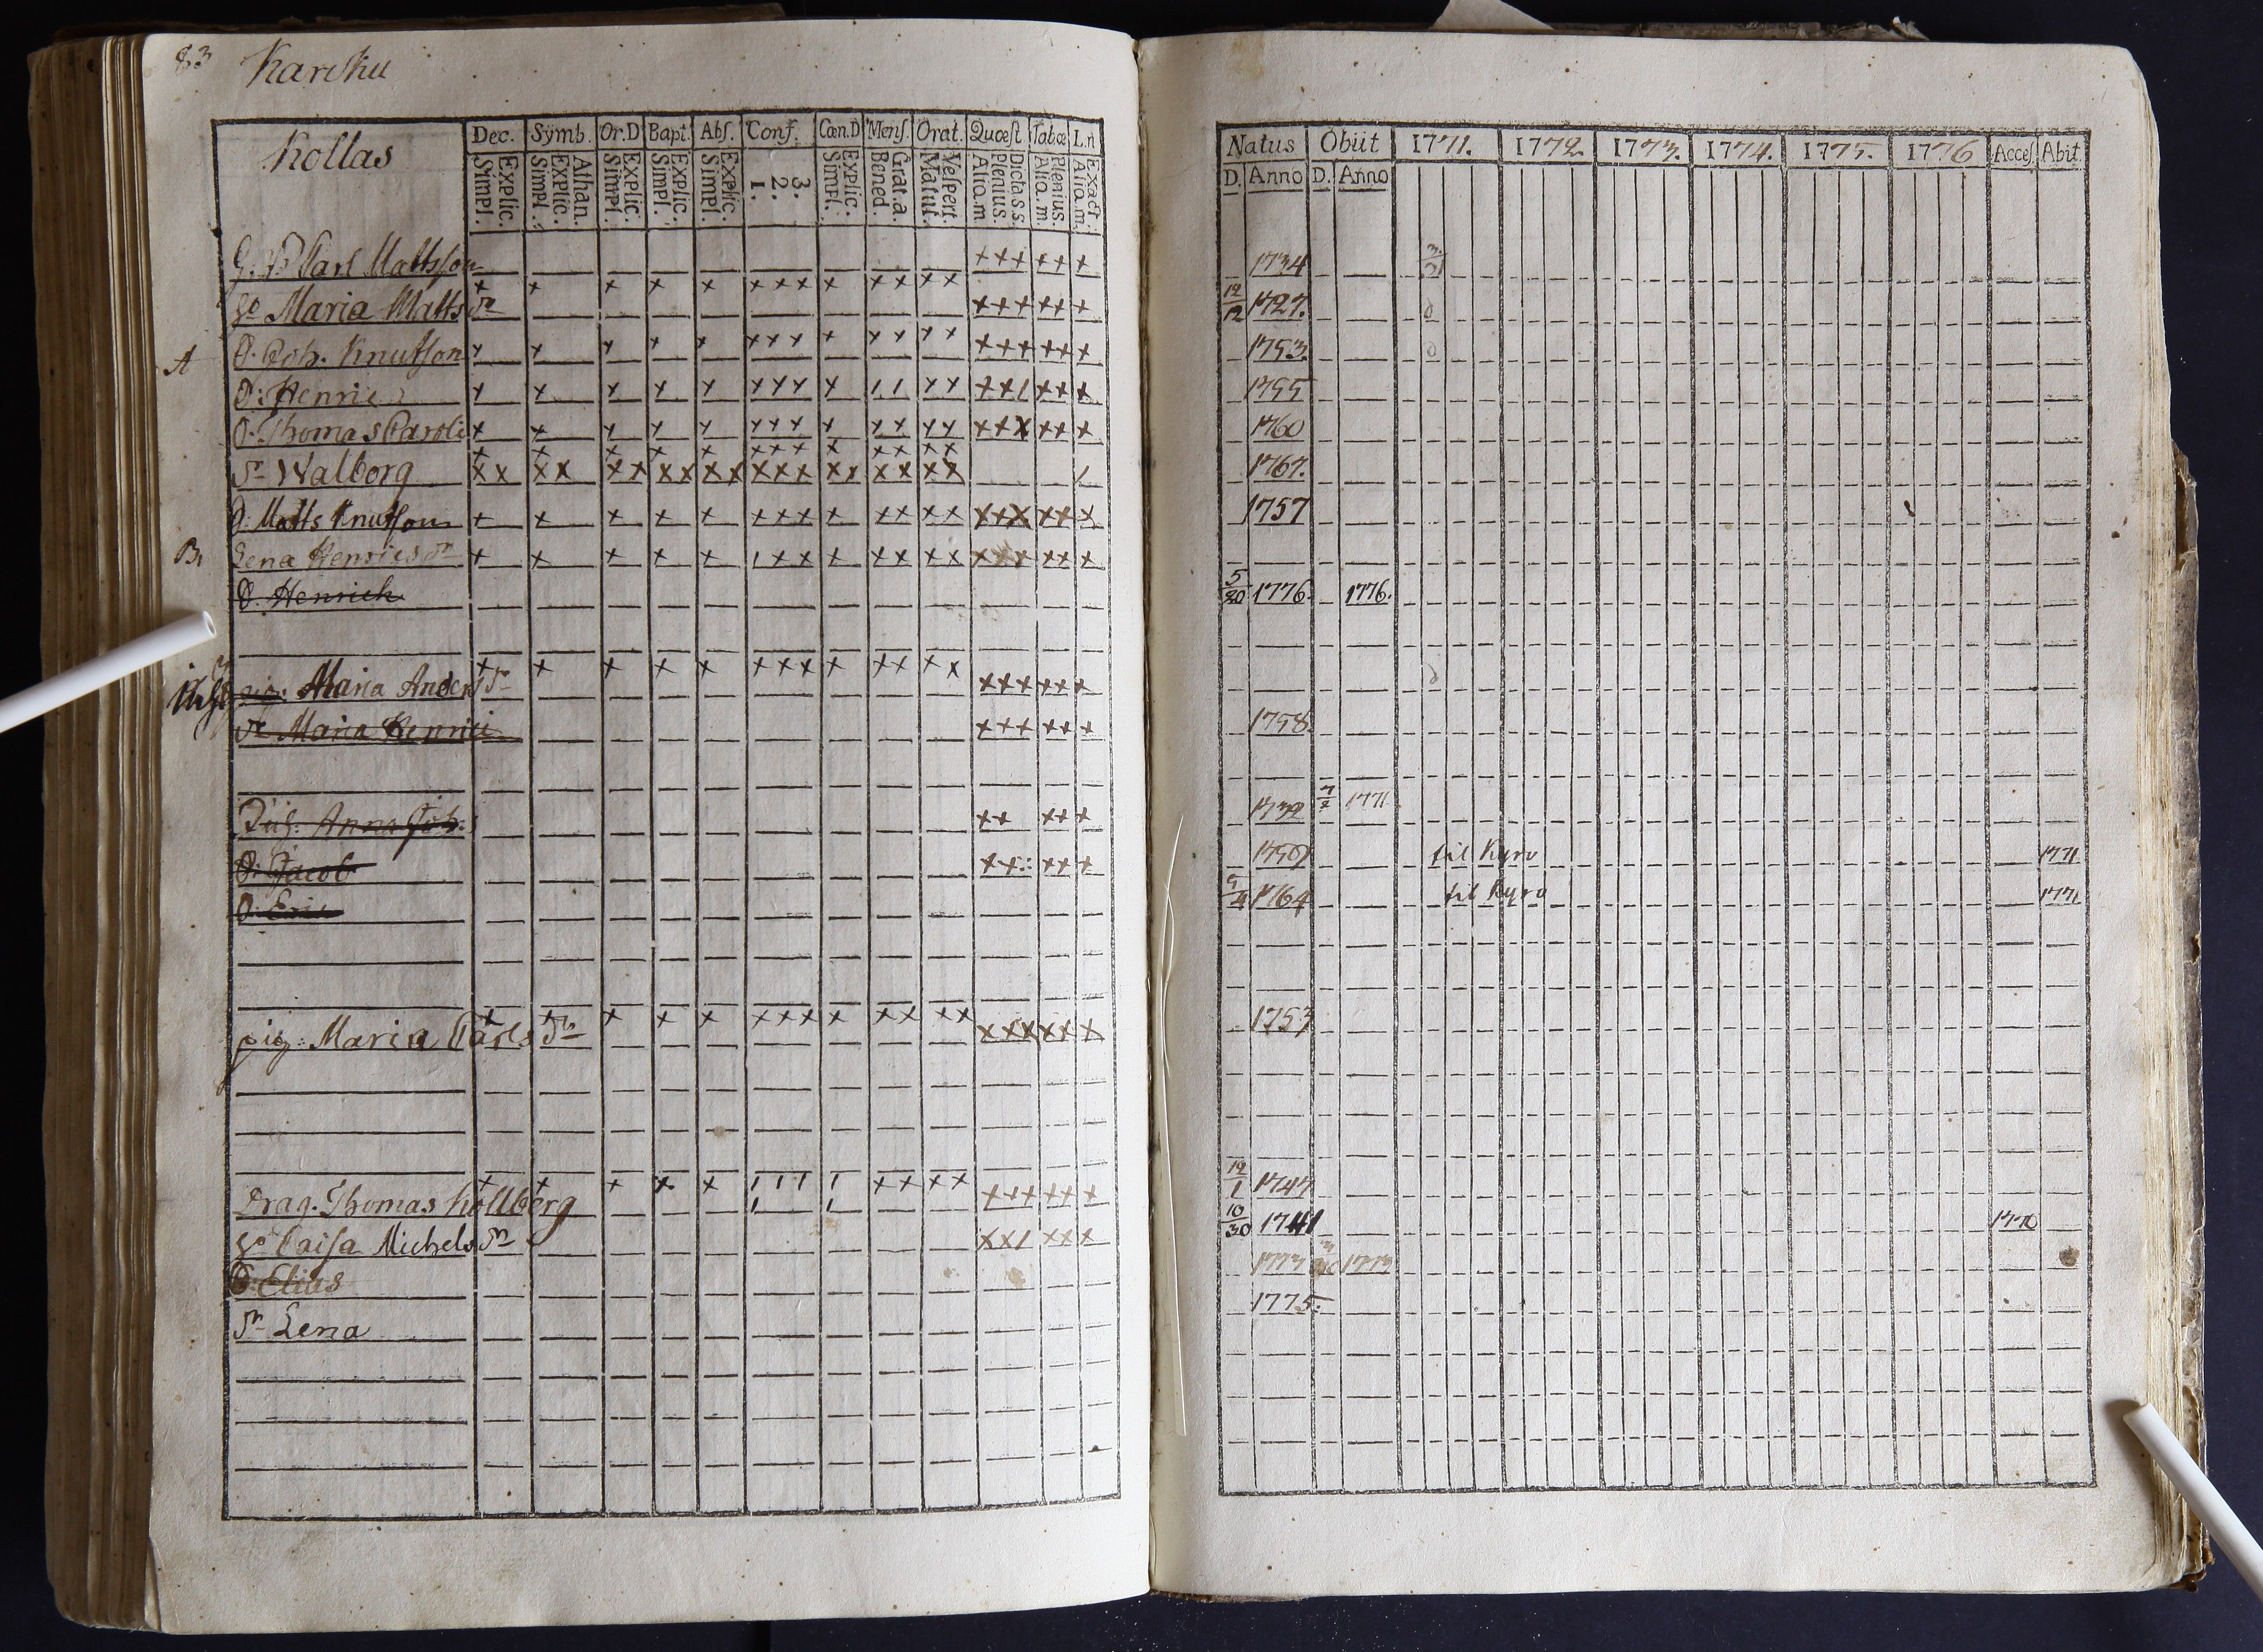 83 Karsku
Kollas
Dec. Symb. Or.D Bapt. Abſ. Conf. Cœn.D Menſ. Orat. Quœſt Tabœ L.n
Explic. Simpl. Athan. Explic. Simpl. Explic. Simpl. Explic. Simpl. Explic. Simpl. 3. 2. 1. Explic. Simpl. Grat.a. Bened. Veſpert. Matut. Dicta s s. Plenius. Alia.m Plenius. Alia.m. Exact. Alia.m.
Carl Mattsſon
Maria Matts dr
A O. Joh. Knutſon
O: Henric
O. Thomas Caroli
dr Walborg
O. Matts Knutſon
B. Lena Henrics dr
O. Henrich
pig: Maria Anders dr
dr Maria Henrici
Anna Joh.
O: Jacob
O: Eric
pig: Maria Carls dr
Drag. Thomas Hollberg
Caiſa Michels dr
O: Elias
dr Lena
Natus Obiit 1771. 1772. 1773. 1774. 1775. 1776 Acceſ. Abit.
D. Anno D. Anno
1734
12/12 1727.
1753.
1755
1760
1767.
1757
5/20 1776. 1776.
1758.
1732 1771
1757 til Kyro 1771
5/4 1764 til Kyro 1771
1753
12/1 1747
10/30 1741 1770
1773 1773
1775.